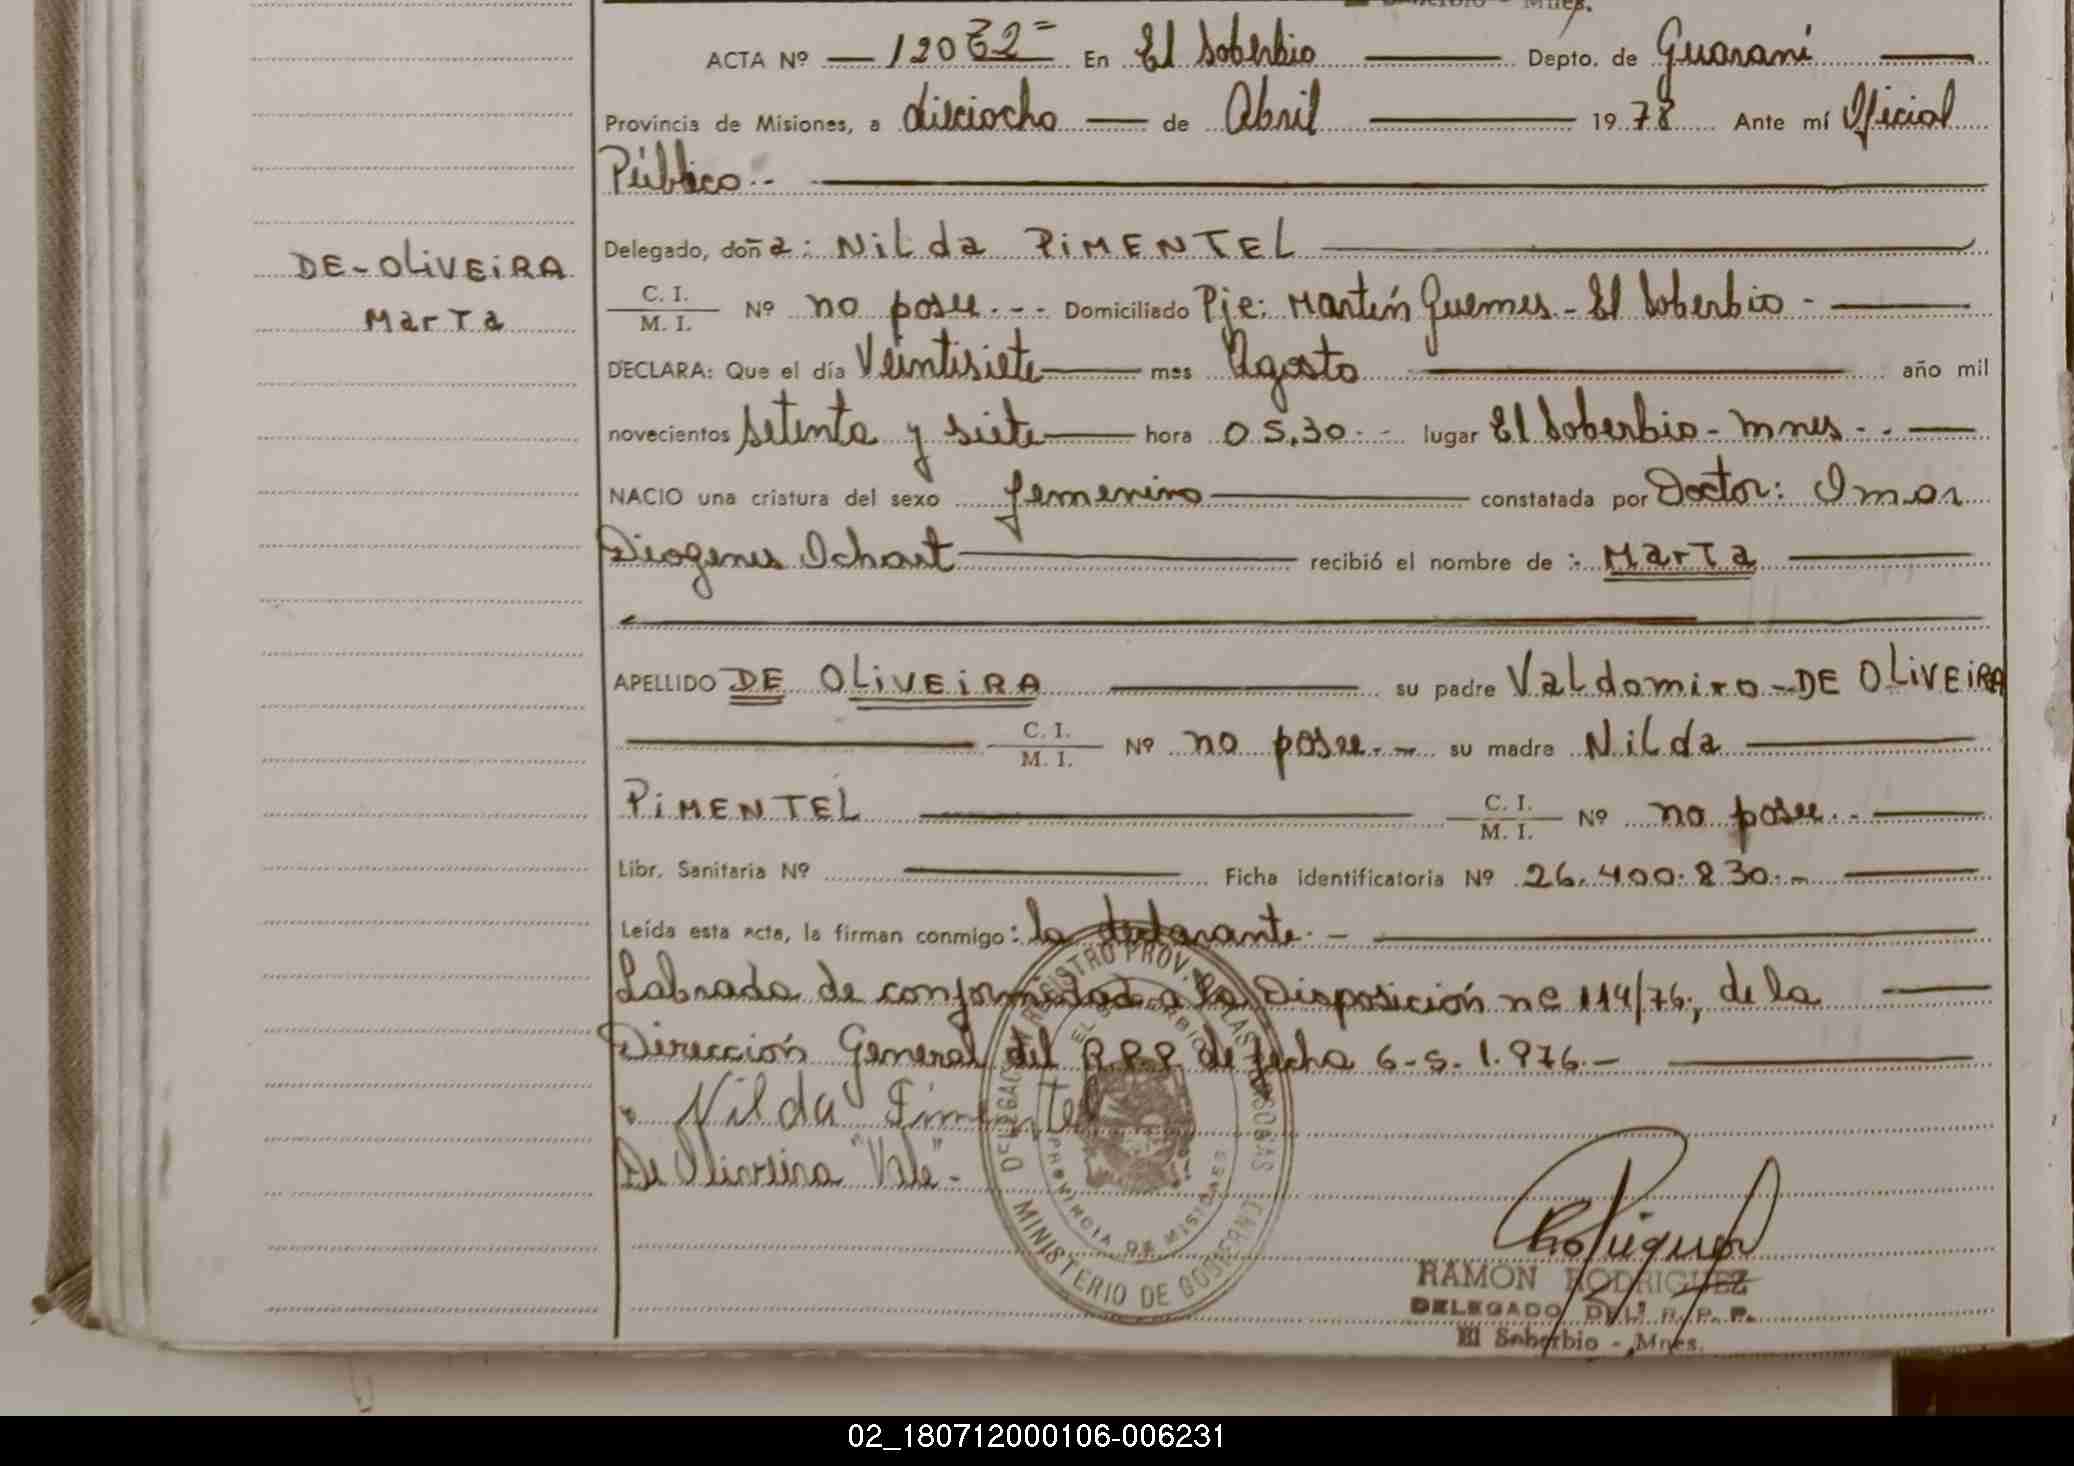 ACTA Nº 12032= En El Soberbio Depto. de Guaraní
Provincia de Misiones, a dieciocho de Abril 1978 Ante mí Oficial
Público.-
Delegado, doña: NiLda PiMENTEL
DE-OLiVEiRA
MarTa
C. I. / M. I. Nº no posee.-- Domiciliado Pje: Martín Guemes - El Soberbio -
DECLARA: Que el día Veintisiete mes Agosto año mil
novecientos setenta y siete hora 05,30.- lugar El Soberbio - Mnes.-
NACIO una criatura del sexo femenino constatada por Doctor: Omar
Diogenes Ichart recibió el nombre de :- MarTa
APELLIDO DE OLiVEiRA su padre VaLdomiro-DE OLiVEiRA
C. I. / M. I. Nº no posee.- su madre NiLda
PiMENTEL C. I. / M. I. Nº no posee.-
Libr. Sanitaria Nº Ficha identificatoria Nº 26.400.830.-
Leída esta acta, la firman conmigo: la declarante.-
Labrada de conformidad a la Disposición nº 114/76, de la
Dirección General del R.P.P. de fecha 6-5-1.976.-
Nilda Pimentel
De Oliveira "Vale".-
DELEGACION REGISTRO PROV. DE LAS PERSONAS
EL SOBERBIO
PROVINCIA DE MISIONES
MINISTERIO DE GOBIERNO
RAMON RODRIGUEZ
DELEGADO DEL R. P. P.
El Soberbio - Mnes.
02_180712000106-006231